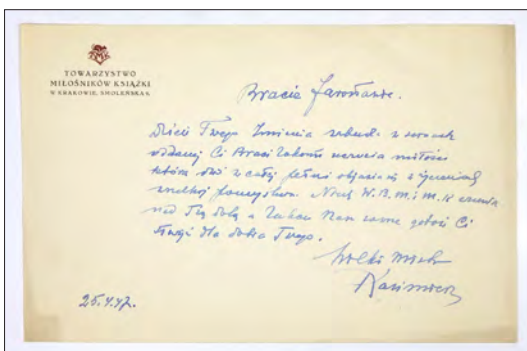 TOWARZYSTWO
MIŁOŚNIKÓW KSIĄŻKI
W KRAKOWIE, SMOLEŃSKA 9.
Bracie
Dzień Twego Imienia w sercach
oddanej Ci Braci Zakonu uczucia miłości
które dziś w całej pełni objawia z życzeniami
wszelkiej pomyślności. Niech W.B.M. i M.K czuwa
nad Tą a Zakon Nasz
dla dobra Twego.
Wielki Mistrz
Kazimierz
25.4.47.